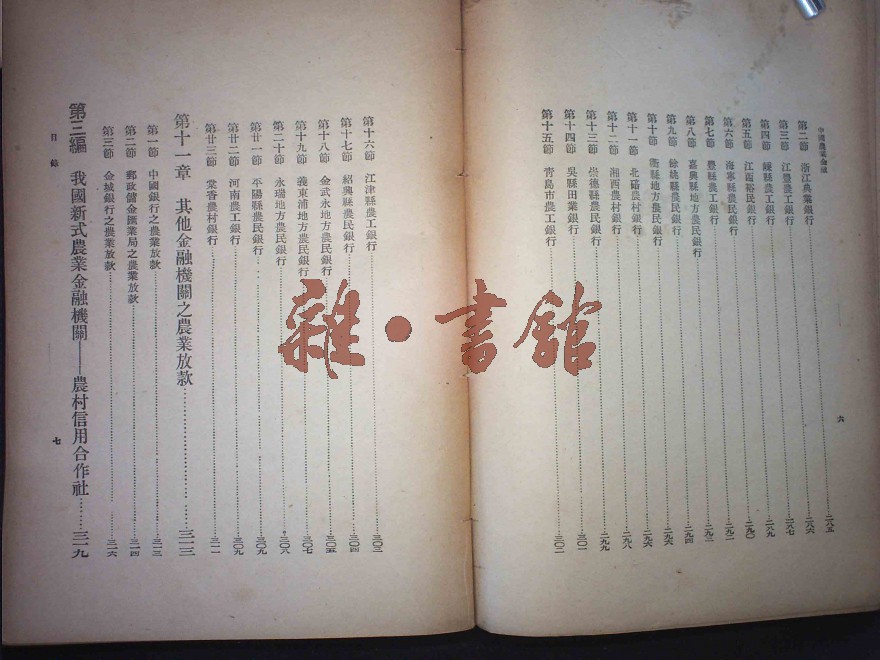 中國農業金融
第二節 浙江典業銀行……二八五
第三節 江豐農工銀行……二八六
第四節 嵊縣農工銀行……二八七
第五節 江西裕民銀行……二八九
第六節 海寧縣農民銀行……二九〇
第七節 豐縣農工銀行……二九二
第八節 嘉興縣地方農民銀行……二九三
第九節 餘姚縣農民銀行……二九四
第十節 衢縣地方農民銀行……二九六
第十一節 北碚農村銀行……二九六
第十二節 湘西農村銀行……二九八
第十三節 崇德縣農民銀行……二九九
第十四節 吳縣田業銀行……三〇一
第十五節 青島市農工銀行……三〇二
六
第十六節 江津縣農工銀行……三〇三
第十七節 紹興縣農民銀行……三〇四
第十八節 金武永地方農民銀行……三〇五
第十九節 義東浦地方農民銀行……三〇七
第二十節 永瑞地方農民銀行……三〇八
第廿一節 平陽縣農民銀行……三〇九
第廿二節 河南農工銀行……三〇九
第廿三節 棠香農村銀行……三一一
第十一章 其他金融機關之農業放款……三一三
第一節 中國銀行之農業放款……三一三
第二節 郵政儲金匯業局之農業放款……三一四
第三節 金城銀行之農業放款……三一六
第三編 我國新式農業金融機關——農村信用合作社……三一九
目錄
七
雜·書館